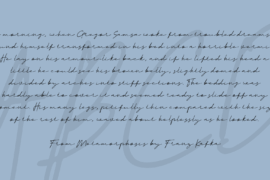 morning, when Gregor Samsa woke from troubled dreams
found himself transformed in his bed into a horrible vermin
He lay on his armour-like back, and if he lifted his head a
little he could see his brown belly, slightly domed and
divided by arches into stiff sections. The bedding was
hardly able to cover it and seemed ready to slide off any
moment. His many legs, pitifully thin compared with the size
of the rest of him, waved about helplessly as he looked
From Metamorphosis by Franz Kafka